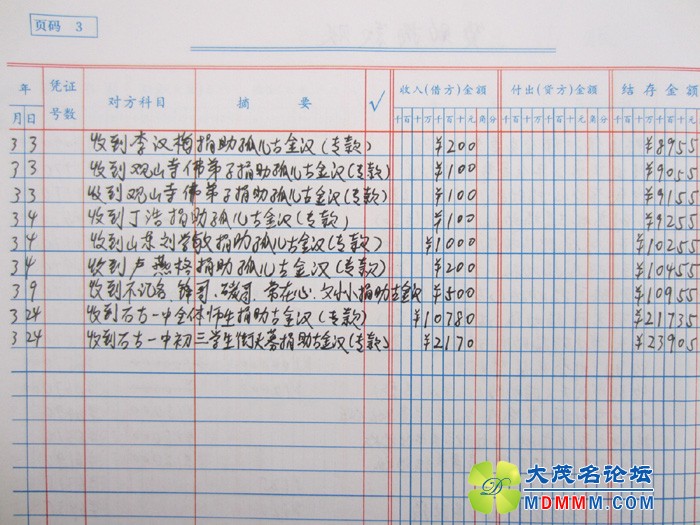 页码 3
年 凭证号数 对方科目 摘要 √ 收入(借方)金额 付出(贷方)金额 结存金额
月 日 千百十万千百十元角分 千百十万千百十元角分 千百十万千百十元
3 3 收到李汉梅捐助孤儿古金汉(专款) ¥200 ¥8955
3 3 收到观山寺佛弟子捐助孤儿古金汉(专款) ¥100 ¥9055
3 3 收到观山寺佛弟子捐助孤儿古金汉(专款) ¥100 ¥9155
3 4 收到丁浩捐助孤儿古金汉(专款) ¥100 ¥9255
3 4 收到山东刘学敏捐助孤儿古金汉(专款) ¥1000 ¥10255
3 4 收到卢燕格捐助孤儿古金汉(专款) ¥200 ¥10455
3 9 收到不沉舟、锋哥、常在心、文小小捐助古金汉 ¥500 ¥10955
3 24 收到石古一中全体师生捐助古金汉(专款) ¥10780 ¥21735
3 24 收到石古一中初三学生街头募捐助古金汉(专款) ¥2170 ¥23905
大茂名论坛
MDMMM.COM